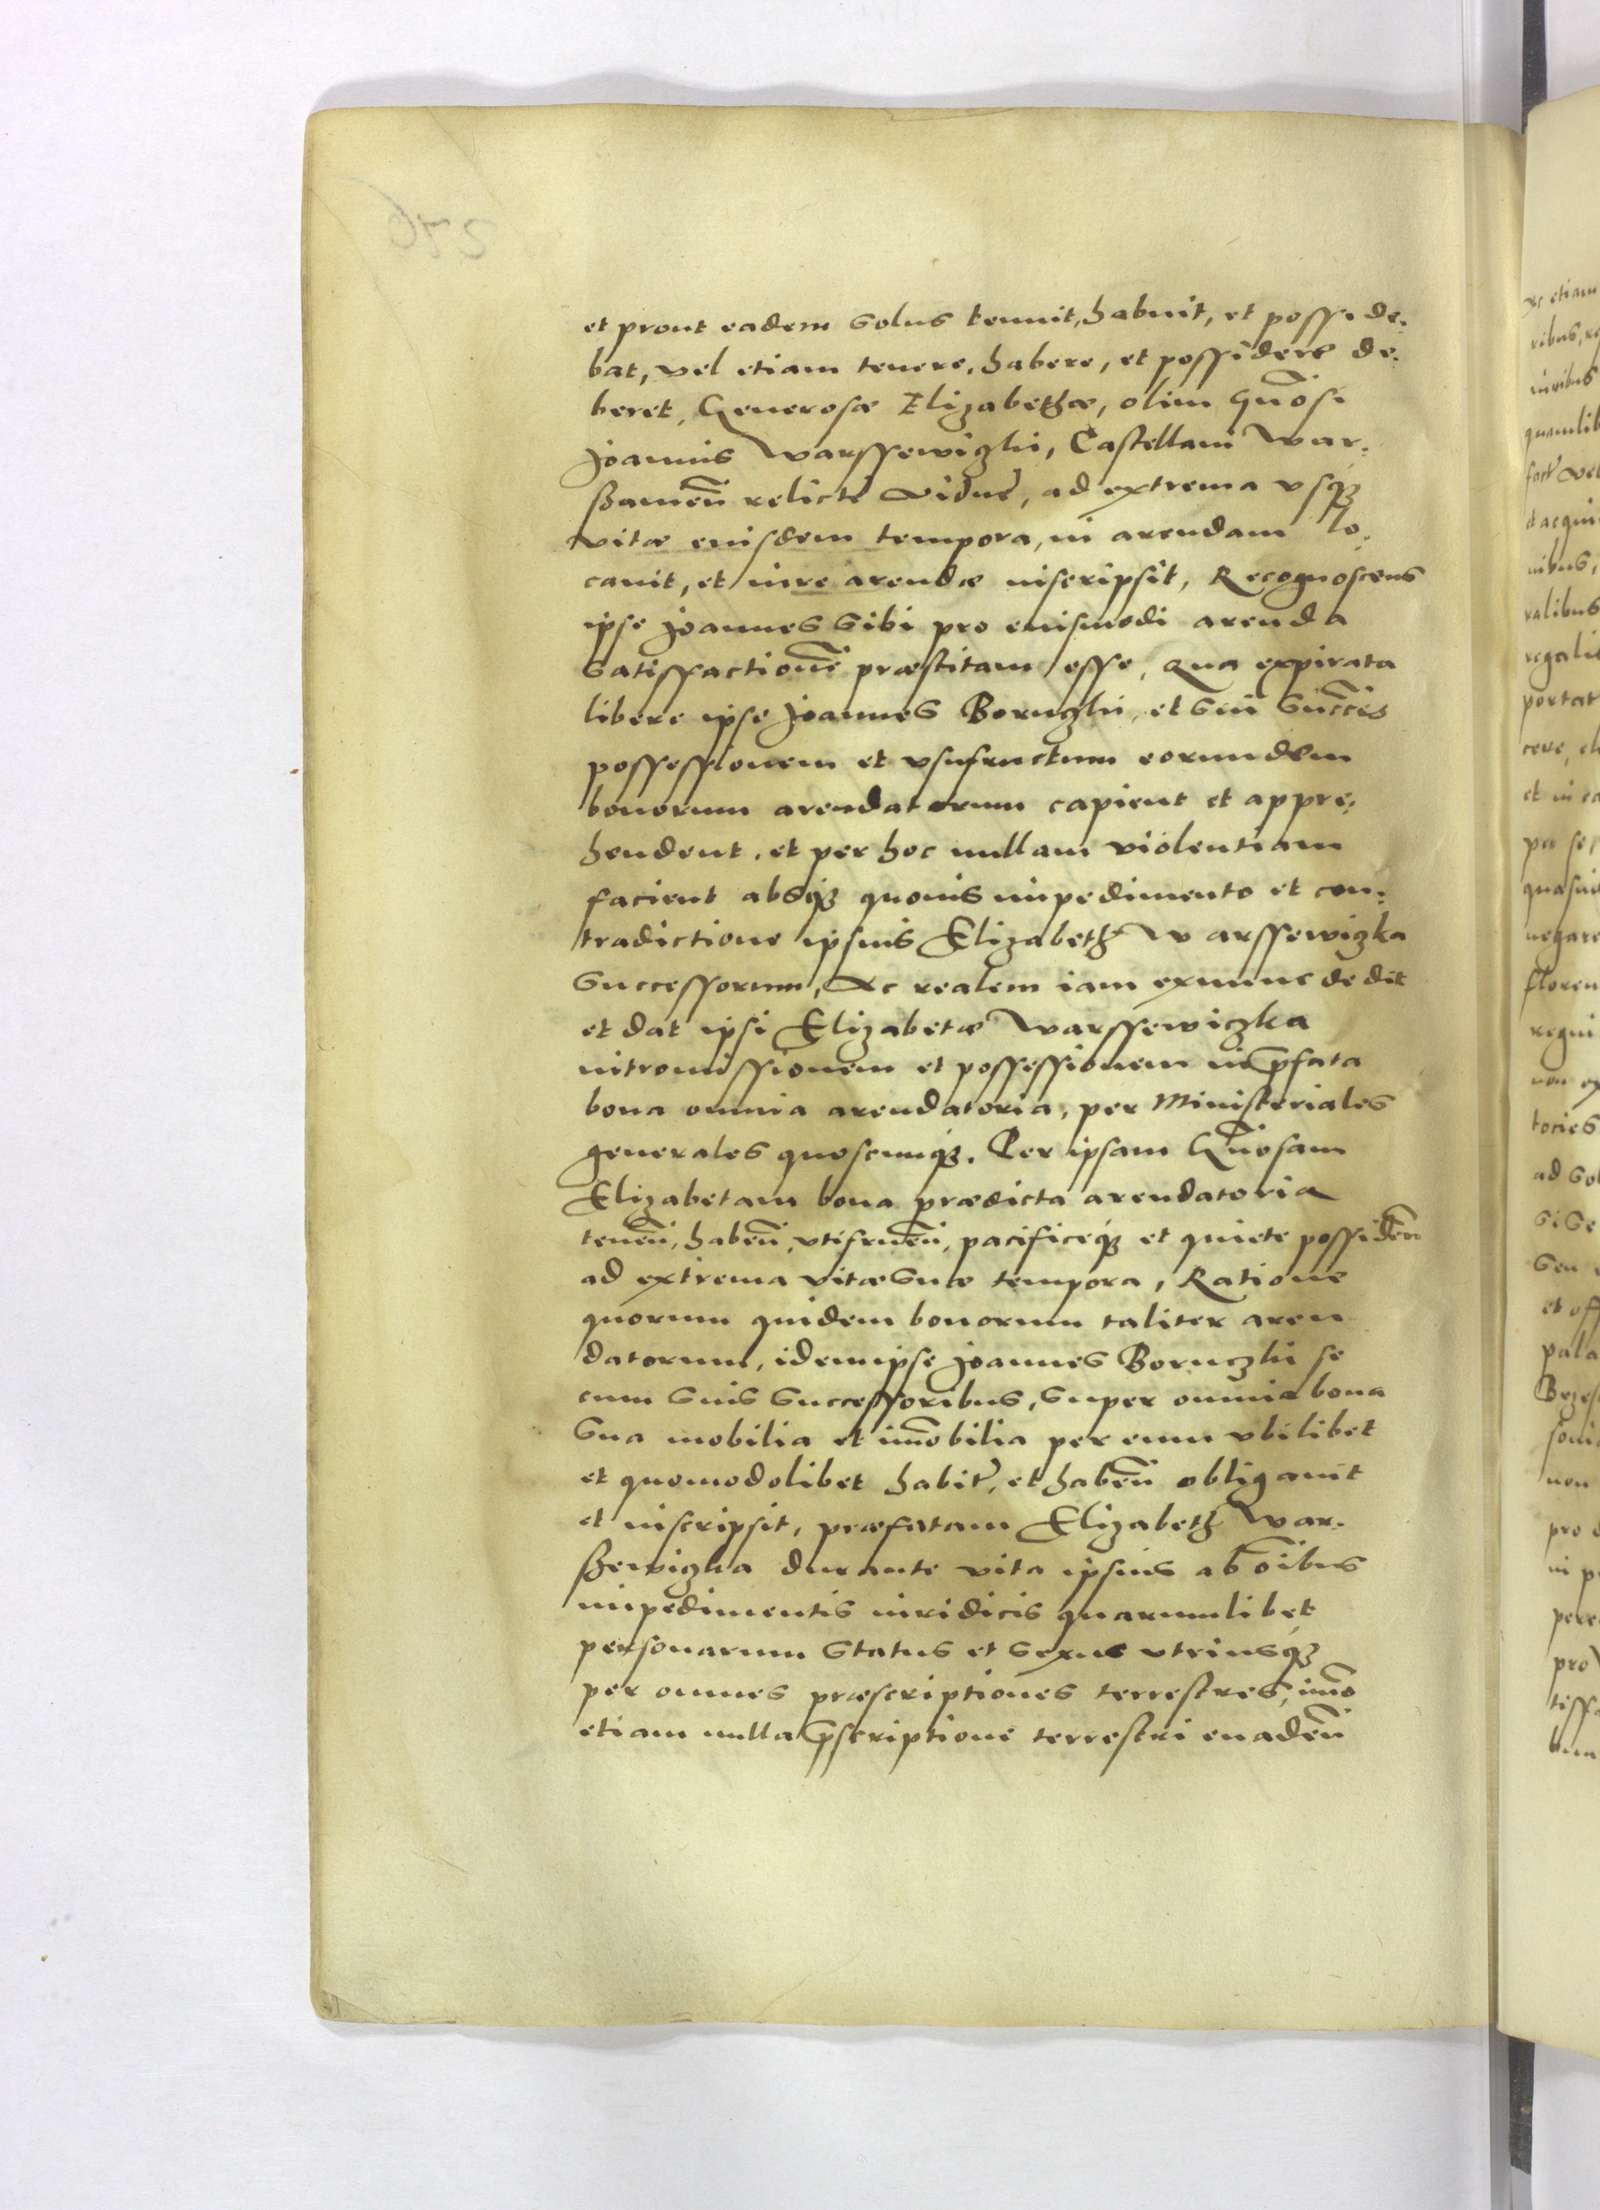 et prout eadem solus tenuit, habuit, et posside:
bat, vel etiam tenere, habere, et possidere de:
beret, Generosæ Elizabethæ, olim Gn̄osi
Joannis Warssewiczki, Castellani War:
ßauien̄ relictę viduę, ad extrema vsq́ꝫ
vitæ eiusdem tempora, in arendam lo:
cauit, et iure arendæ inscripsit, Recognoscens
ipse Joannes sibi pro eiusmodi arenda
satisfactionē præstitam esse, Qua expirata
libere ipse Joannes Boruczki, et sui succ̄es
possessionem et vsufructum eorundem
bonorum arendatorum capient et appre:
hendent, et per hoc nullam violentiam
facient absq́ꝫ quouis impedimento et con:
tradictione ipsius Elizabeth Warssewiczka
Successorum, Ac realem iam exnunc dedit
et dat ipsi Elizabetæ Warssewiczka
intromissionem et possessionem in p̄fata
bona omnia arendatoria, per Ministeriales
generales quoscunq́ꝫ. Per ipsam Gn̄osam
Elizabetam bona prædicta arendatoria
tenen̄, haben̄, vtifruen̄, pacificeq́ꝫ et quiete possiden̄
ad extrema vitæ suæ tempora, Ratione
quorum quidem bonorum taliter aren
datorum, idem ipse Joannes Boruczki se
cum suis successoribus, super omnia bona
sua mobilia et im̄obilia per eum vbilibet
et quomodolibet habit., et haben̄ obligauit
et inscripsit, præfatam Elizabeth War:
ßewiczka durante vita ipsius ab oībus
impedimentis iuridicis quarumlibet
personarum status et sexus vtriusq́ꝫ
per omnes præscriptiones terrestres, im̄o
etiam nulla p̄scriptione terrestri euaden̄